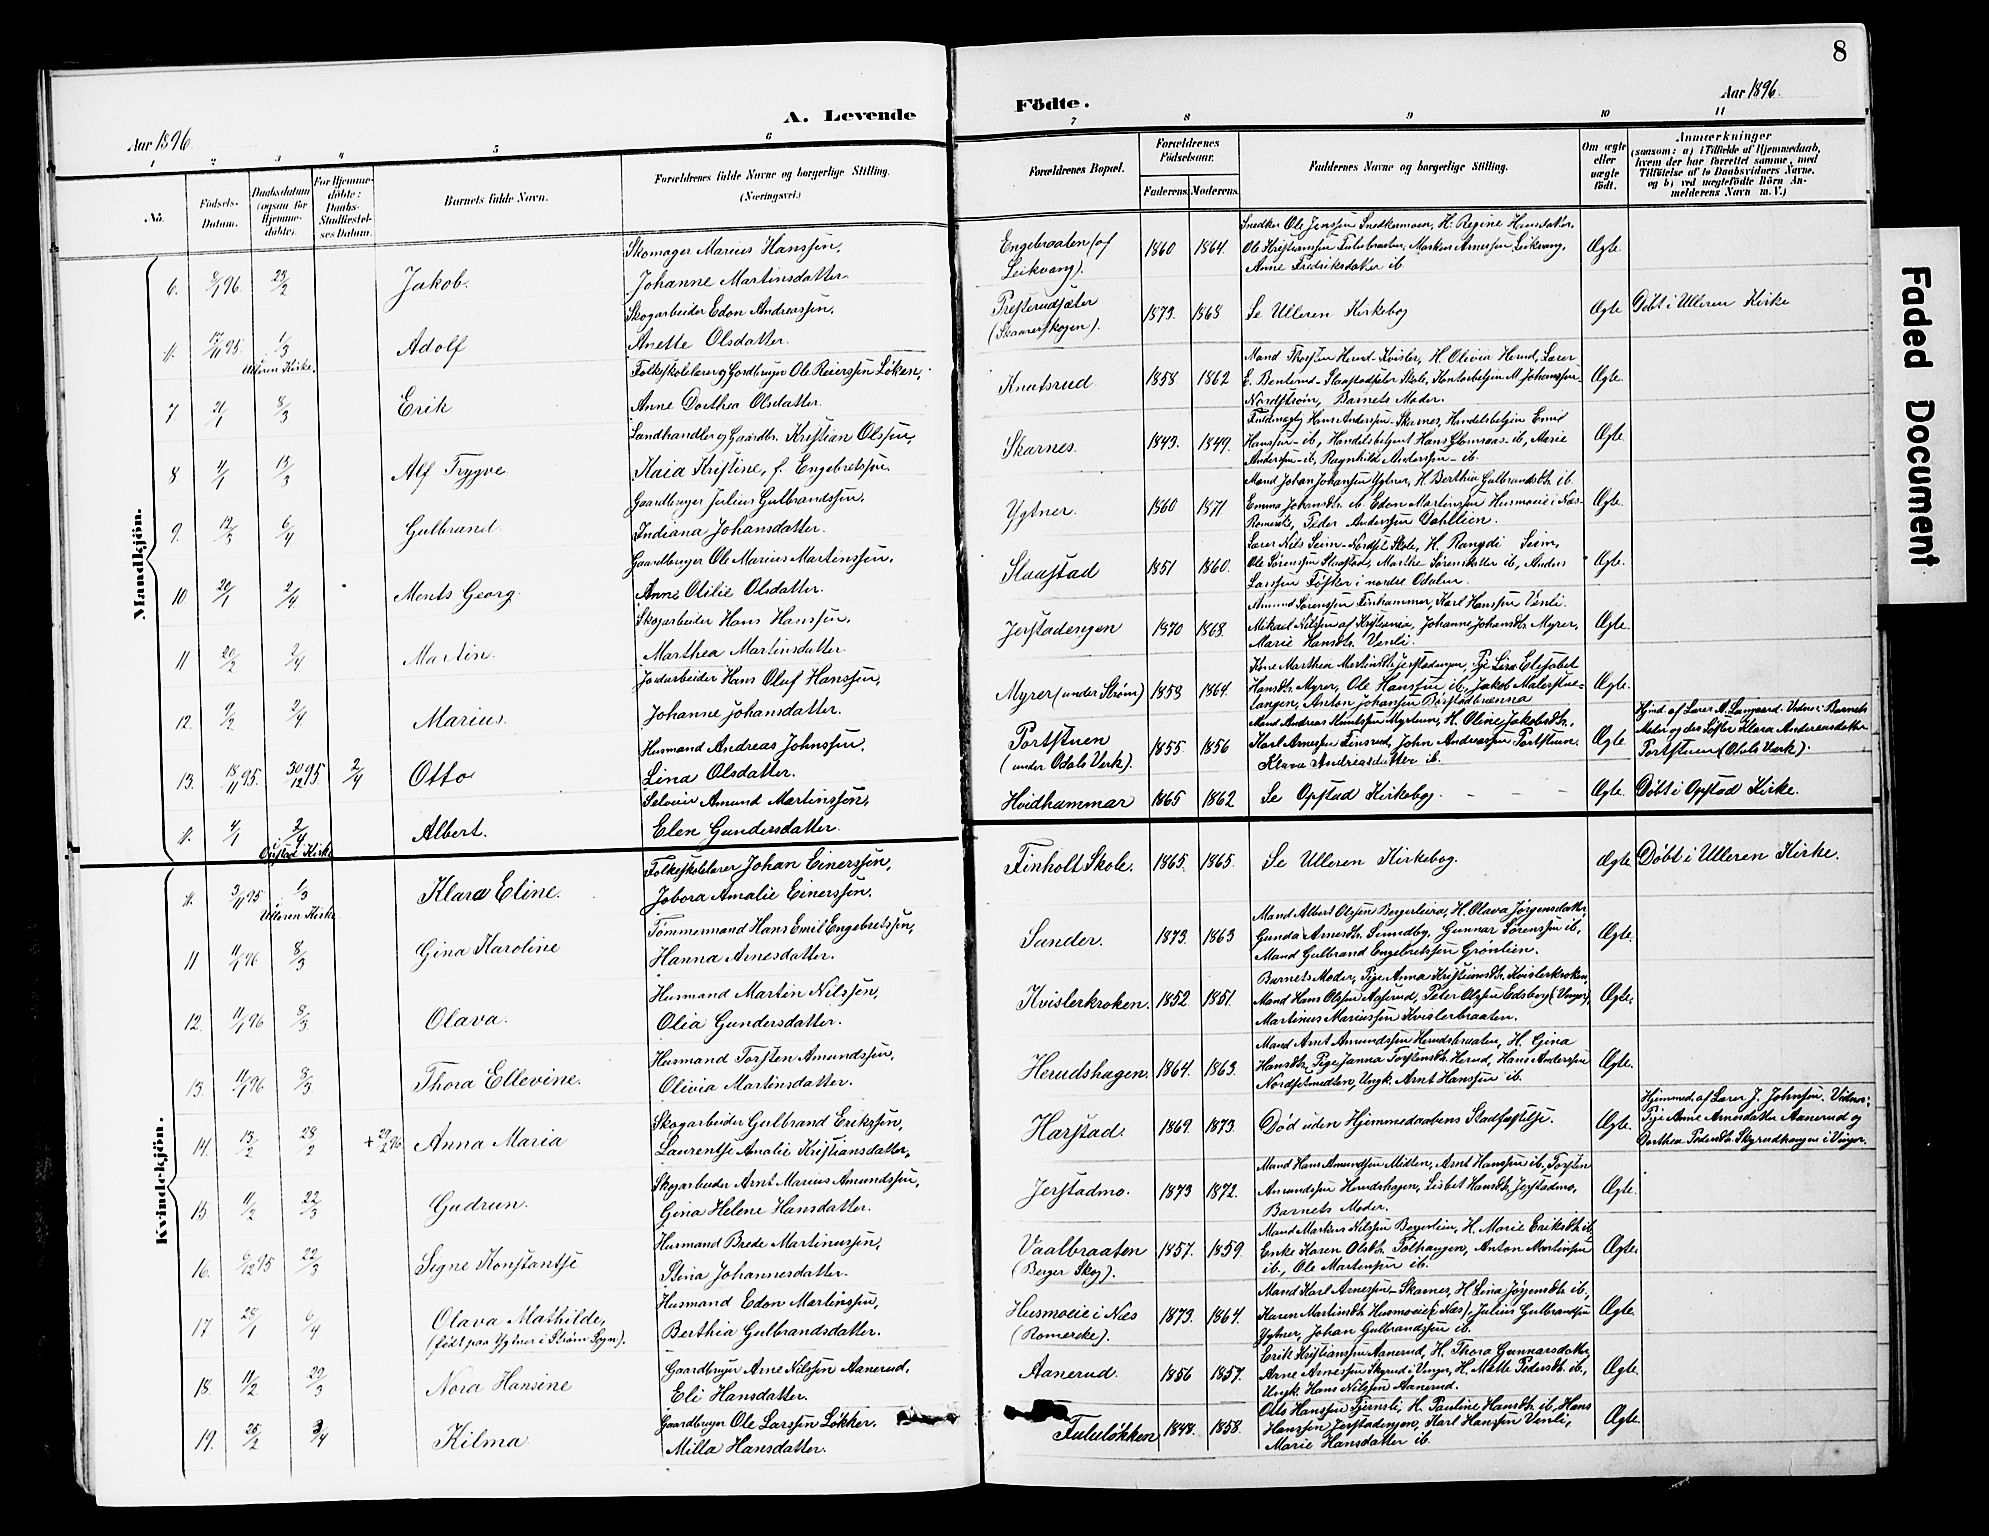 8
Aar 1896
A. Levende
Födte.
Aar 1896.
1 2 3 4 5 6 7 8 9 10 11
No.
Födsels-Datum.
Daabsdatum (ogsaa for Hjemme-döbte).
For Hjemme-döbte: Daabs-Stadfæstel-ses Datum.
Barnets fulde Navn.
Forældrenes fulde Navne og borgerlige Stilling.
(Næringsvei.)
Forældrenes Bopæl.
Forældrenes Födselsaar.
Faderens. Moderens.
Faddernes Navne og borgerlige Stilling.
Om ægte eller uægte født.
Anmærkninger
(saasom: a) i Tilfælde af Hjemmedaab,
hvem der har forrettet samme, med
Tilföielse af to Daabsvidners Navne,
og b) ved uægtefödte Börn An-
melderens Navn m. V.)
Mandkjön.
6. 8/1 96 23/2 Jakob.
Skomager Marius Hanssen,
Johanne Martinsdatter
Engebraaten (af Leikvang).
1860 1864.
Snedker Ole Jenssen Snedkermoen, H. Regine Hansdatter,
Ole Kristiansen Fulubraaten, Markus Arnessen Leikvang,
Anne Fredriksdatter ib.
Ægte.
17/11 95. 1/3 Ulleren Kirke. Adolf
Skogarbeider Edon Andreassen,
Anette Olsdatter.
Presterudsæter (Skaarerskogen).
1873. 1868
Se Ulleren Kirkebog
Ægte. Döbt i Ulleren Kirke
7 21/1 8/3 Erik
Folkeskolelærer og Gordbruger Ole Reiersen Løken,
Anne Dorthea Olsdatter.
Knatsrud.
1858. 1862
Mand Thorsten Herud-Kvisler, H. Olivia Herud, Lærer
E. Benterud-Slaastadsæter Skole, Kontorbetjen M. Johanssen
Nordstrøm, Barnets Moder.
Ægte.
8 4/1 13/3 Alf Trygve
Landhandler og Gaardbr. Kristian Olssen,
Kaia Kristine, f. Engebretssen.
Skarnes.
1849. 1849.
Fuldmægtig Hans Anderssen-Skarnes, Handelsbetjen Emil
Hanssen-ib, Handelsbetjent Hans Glomsaas-ib, Marie
Anderssen-ib, Ragnhild Anderssen-ib.
Ægte.
9. 12/3 6/4 Gulbrand.
Gaardbruger Julius Gulbrandssen,
Indiana Johansdatter.
Ygtner.
1860 1871
Mand Johan Johansen Ygtner, H. Berthia Gulbrandsdtr. ib.
Emma Johansdtr. ib. Edon Martinssen Husmoeie i Næs
Romerike, Peder Anderssen Dahllien.
Ægte.
10. 20/1 2/4 Ments Georg.
Gaardbruger Ole Marius Martinssen,
Anne Otilie Olsdatter.
Slaastad
1851 1860.
Lærer Nils Seim-Nordset Skole, H. Rangdi Seim,
Ole Sørenssen Slaastad, Marthe Sørensdatter ib, Anders
Larssen Føsker i nordre Odalen.
Ægte.
11 20/2 2/4 Martin.
Skogarbeider Hans Hanssen,
Marthea Martinsdatter
Jerstadengen
1870 1868.
Amund Sørenssen Finhammer, Karl Hanssen Venli.
Mikael Nilssen af Kristiania, Johanne Johansdtr. Myrer,
Marie Hansdtr. Venli.
Ægte.
12. 9/2 2/4 Marius.
Jordarbeider Hans Oluf Hanssen,
Johanne Johansdatter.
Myrer (under Strøm)
1858 1864.
Kone Marthea Martinsdtr. Jerstadengen, Pige Lina Elisabet
Hansdtr. Myrer, Ole Hanssen ib., Jakob Malerstue-
langen, Anton Johansen Børstadbrænna
Ægte.
13. 18/11 95. 30/12 95 2/4 Otto
Husmand Andreas Johnssen,
Lina Olsdatter.
Portstuen (under Odals Verk).
1855 1856
Mand Andreas Knutssen Myrtein, H. Oline Jakobsdtr.,
Karl Arnessen Finsrud, John Andreassen Portstuen.
Klara Andreasdatter ib.
Ægte.
Hjmd. af Lærer A. Langaard. Vidner: Barnets
Moder og dets Søster Klara Andreasdatter
Portstuen (Odals Verk).
4/1 2/4 Opstad Kirke Albert.
Selveier Amund Martinssen,
Elen Gundersdatter.
Hvidhammar
1865 1862
Se Opstad Kirkebog.
Ægte. Döbt i Opstad Kirke.
Kvindekjön.
3/11 95 1/3 Ulleren Kirke Klara Eline.
Folkeskolelærer Johan Einerssen,
Jobora Amalie Einerssen.
Finholt Skole.
1865. 1865.
Se Ulleren Kirkebog.
Ægte Döbt i Ulleren Kirke.
11 11/1 96 8/3 Gina Karoline
Tømmermand Hans Emil Engebretssen,
Hanna Arnesdatter.
Sander.
1873. 1863
Mand Albert Olssen Bergerleira, H. Olava Jørgensdatter,
Gunda Arnesdtr. Sundby, Gunnar Sørenssen ib,
Mand Gulbrand Engebretssen Grønlien.
Ægte.
12. 11/1 96 8/3 Olava.
Husmand Martin Nilssen,
Olia Gundersdatter.
Kvislerkroken.
1852 1851.
Barnets Moder, Pige Anna Kristiansdtr. Kvislerkroken,
Mand Hans Olssen Aaserud, Peter Olssen Edsberg (Vinger),
Martinus Mariussen Kvislerbraaten.
Ægte.
13. 11/1 96 8/3 Thora Ellevine.
Husmand Torsten Amundssen,
Olivia Martinsdatter.
Herudshagen.
1864. 1863.
Mand Arnt Amundssen Herudsbraaten, H. Gina
Hansdtr., Pige Janna Torstensdtr. Herud, Hans Anderssen
Nordsetmidten, Ungk. Arnt Hanssen ib.
Ægte.
14. 13/2 28/2 + 29/2 96 Anna Maria
Skogarbeider Gulbrand Erikssen,
Laurentse Amalie Kristiansdatter,
Harstad.
1869 1873.
Død uden Hjemmedaabens Stadfæstelse.
Ægte.
Hjemmed. af Lærer J. Johnsen. Vidner:
Pige Anne Arnesdatter Aanerud og
Dorthea Pedersdtr. Skyrudhaugen i Vinger.
15 11/2 22/3 Gudrun.
Skogarbeider Arnt Marius Amundssen,
Gina Helene Hansdatter.
Jerstadmo.
1873 1872.
Mand Hans Amundsen Midten, Arnt Hanssen ib, Torsten
Amundssen Herudshagen, Lisbet Hansdtr. Jerstadmo,
Barnets Moder.
Ægte.
16. 6/12 95 22/3 Signe Konstantse
Husmand Brede Martinussen,
Stina Johannesdatter.
Vaalbraaten (Berger Skog).
1857. 1859.
Mand Markus Nilssen Bergerlein, H. Marie Eriksdtr. ib,
Enke Karen Olsdtr. Tolhaugen, Anton Martinsen
ib., Ole Martensen ib.
Ægte.
17 28/1 6/4 Olava Mathilde,
(født paa Ygtner i Strøm Sogn).
Husmand Edon Martinssen,
Berthia Gulbrandsdatter.
Husmoeie i Næs (Romerike).
1873. 1864.
Mand Karl Arnessen-Skarnes, H. Lina Jørgensdtr. ib.,
Karen Martinsdtr. Husmoeie (i Næs), Julius Gulbrandsen
Ygtner, Johan Gulbrandssen ib.
Ægte.
18. 11/2 29/3 Nora Hansine
Gaardbruger Arne Nilssen Aanerud,
Eli Hansdatter.
Aanerud.
1856 1857.
Erik Kristianssen Aanerud, H. Thora Gunnarsdatter,
Arne Arnessen Skyrud i Vinger, H. Mathe Pedersdtr. ib.,
Ungk. Hans Nilssen Aanerud.
Ægte.
19. 25/2 3/4 Kilma.
Gaardbruger Ole Larssen Løkker.
Milla Hansdatter.
Fululøkken
1848. 1858.
Otto Hanssen Tjernsli, H. Pauline Hansdtr. ib, Hans
Hanssen Jerstadengen, Karl Hanssen Venli,
Marie Hansdatter ib.
Ægte.
Faded Document